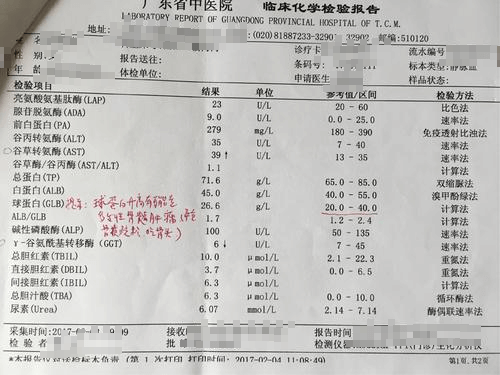 广东省中医院 临床化学检验报告
LABORATORY REPORT OF GUANGDONG PROVINCIAL HOSPITAL OF T.C.M.
地址: (020)81887233-3290 32902 邮编:510120
姓 诊疗卡 流水号
性别: 报告送往: 条码号: 标本类型:静脉血
年龄 体检单位: 申请医生 样品状态:
检验项目 结果 单位 参考值/区间 检验方法
亮氨酸氨基肽酶(LAP) 23 U/L 20 - 60 比色法
腺苷脱氨酶(ADA) 9.0 U/L 0.0 - 25.0 速率法
前白蛋白(PA) 279 mg/L 180 - 390 免疫透射比浊法
谷丙转氨酶(ALT) 35 U/L 7 - 45 速率法
谷草转氨酶(AST) 39 ↑ U/L 13 - 35 速率法
谷草酶/谷丙酶(AST/ALT) 1.1 计算法
总蛋白(TP) 71.6 g/L 65.0 - 85.0 双缩脲法
白蛋白(ALB) 45.0 g/L 40.0 - 55.0 溴甲酚绿法
球蛋白(GLB) 26.6 g/L 20.0 - 40.0 计算法
球蛋白升高有可能是
多发性骨髓肿瘤
ALB/GLB 1.7 1.2 - 2.4 计算法
碱性磷酸酶(ALP) 100 U/L 50 - 135 速率法
γ-谷氨酰基转移酶 (GGT) 6 ↓ U/L 7 - 45 速率法
总胆红素(TBIL) 10.0 μmol/L 2.1 - 22.3 重氮法
直接胆红素(DBIL) 3.7 μmol/L 0.0 - 6.5 重氮法
间接胆红素(IBIL) 6.3 μmol/L 计算法
总胆汁酸(TBA) 6.3 μmol/L 0.0 - 10.0 循环酶法
尿素(Urea) 6.07 mmol/L 2.14 - 7.14 酶偶联速率法
采集时间:2017-02 9:09 接收时 报告时间:
检验者 审核者 检测仪器 (门诊)生化分析仪
*本报告仅对送检标本负责 (第 1 次打印 打印时间: 2017-02-04 11:08:49) 第1页,共2页